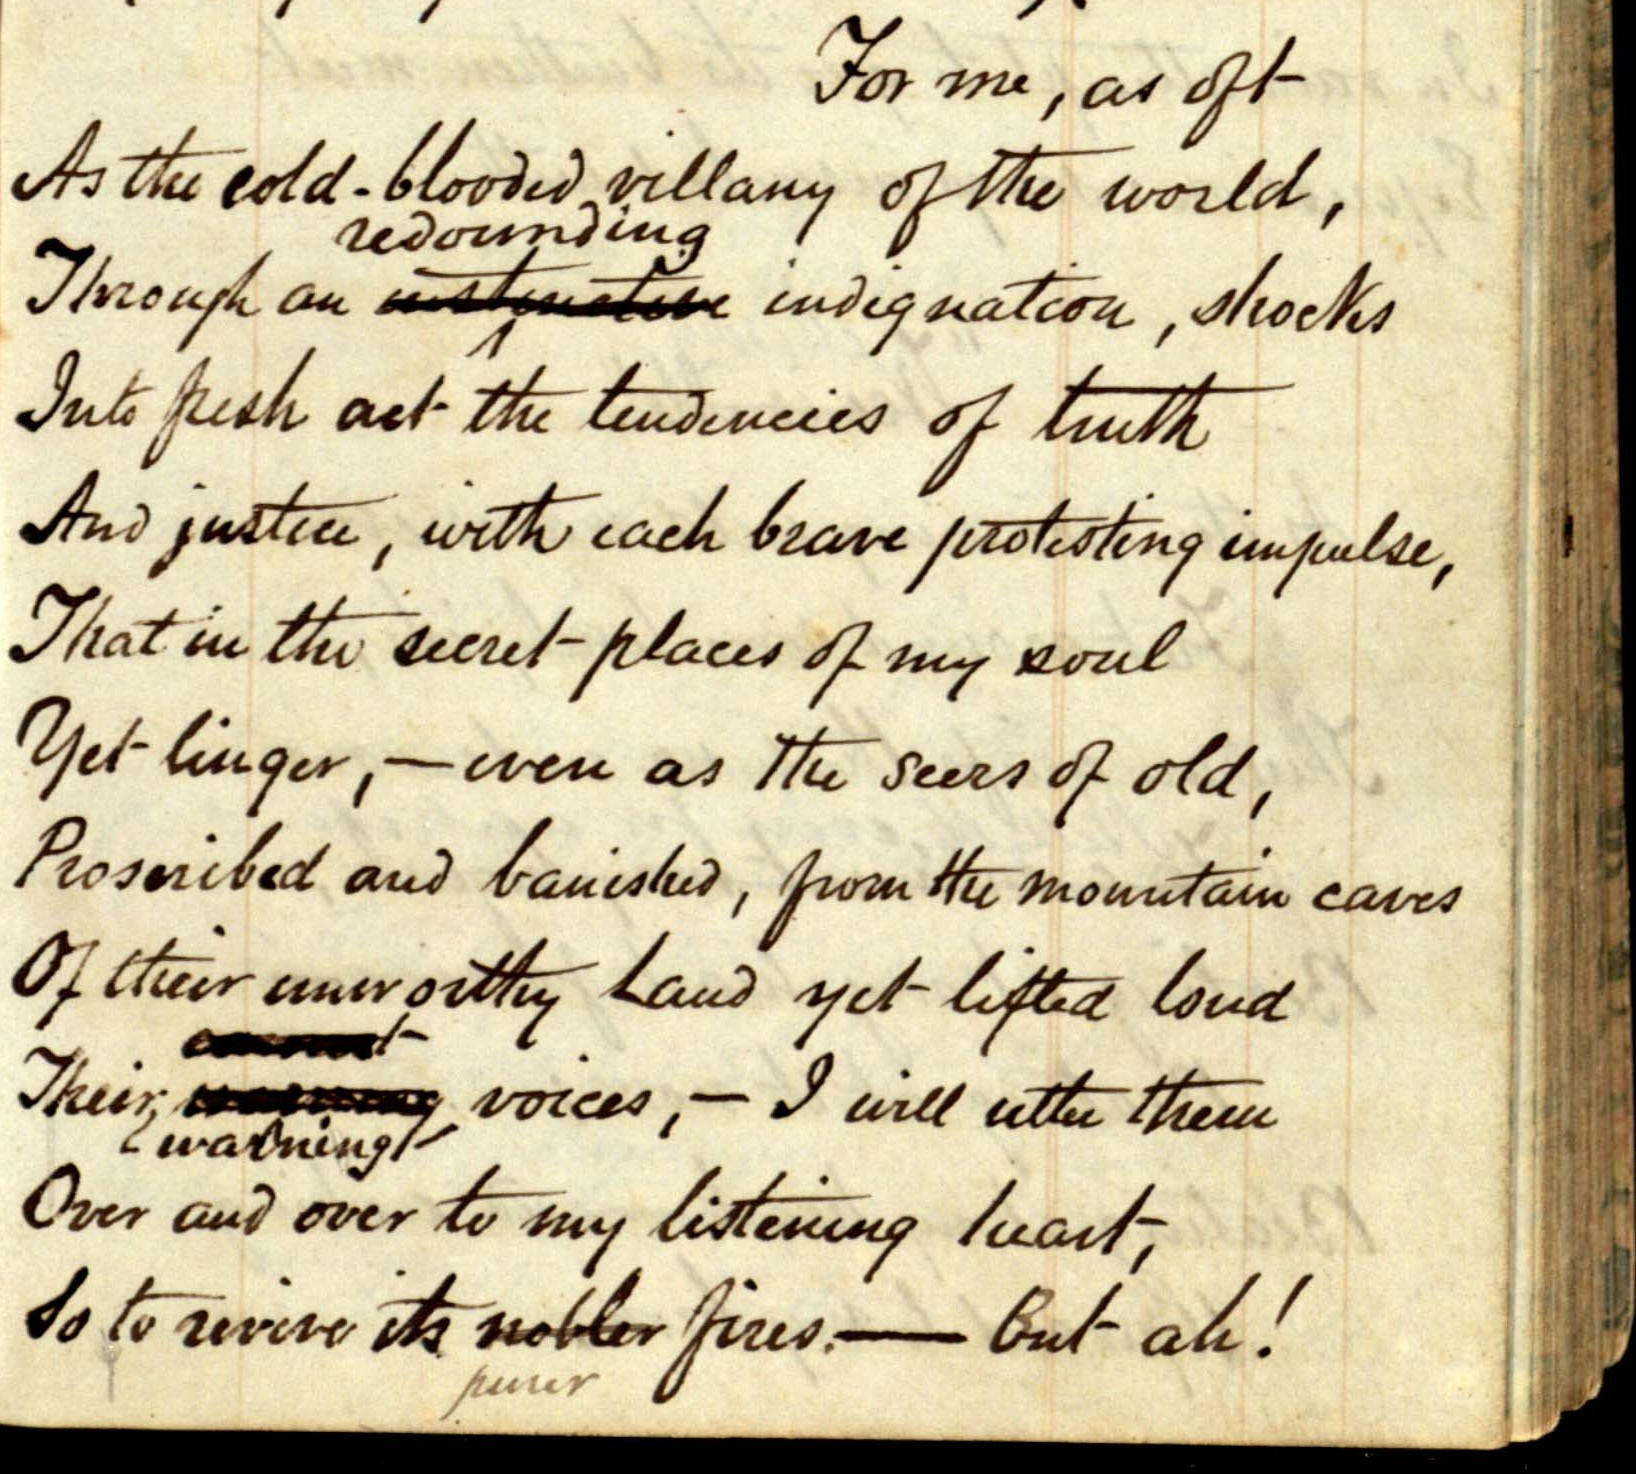 For me, as oft
As the cold-blooded villany of the world,
redounding
Through an indignation, shocks
Into fresh act the tendencies of truth
And justice, with each brave protesting impulse,
That in the secret places of my soul
Yet linger, — even as the seers of old,
Proscribed and banished, from the mountain caves
Of their unworthy Land yet lifted loud
Their, voices, — I will utter them
warning
Over and over to my listening heart,
So to revive its nobler fires. — But ah!
purer